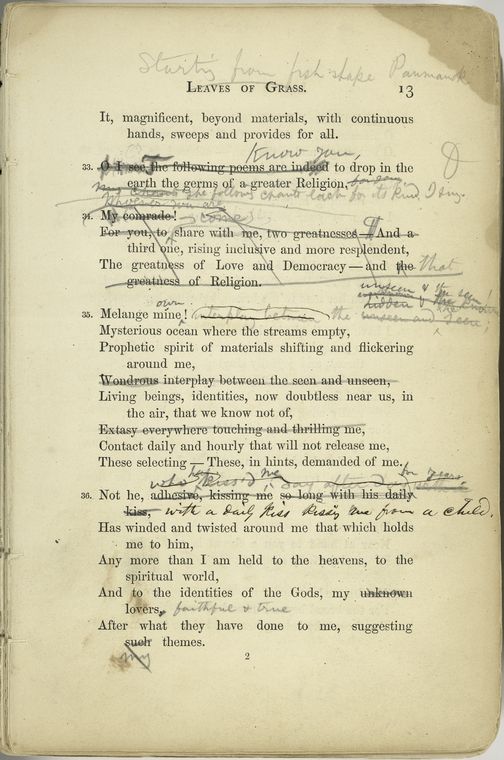 Starting from fish shape Paumanok
LEAVES OF GRASS. 13
It, magnificent, beyond materials, with continuous
hands, sweeps and provides for all.
Know you,
33. O I see the following poems are indeed to drop in the
earth the germs of a greater Religion,
My the follows chants each for its kind I sing.
34. My comrade!
For you, to share with me, two greatnesses—And a
third one, rising inclusive and more resplendent,
The greatness of Love and Democracy—and the that
greatness of Religion.
unseen & the seen
own
35. Melange mine! the unseen and seen;
Mysterious ocean where the streams empty,
Prophetic spirit of materials shifting and flickering
around me,
Wondrous interplay between the seen and unseen,
Living beings, identities, now doubtless near us, in
the air, that we know not of,
Extasy everywhere touching and thrilling me,
Contact daily and hourly that will not release me,
These selecting—These, in hints, demanded of me.
who kiss'd me
36. Not he, adhesive, kissing me so long with his daily
kiss, with a daily kiss kissing me from a child.
Has winded and twisted around me that which holds
me to him,
Any more than I am held to the heavens, to the
spiritual world,
And to the identities of the Gods, my unknown
lovers, faithful & true
After what they have done to me, suggesting
such themes.
my
2